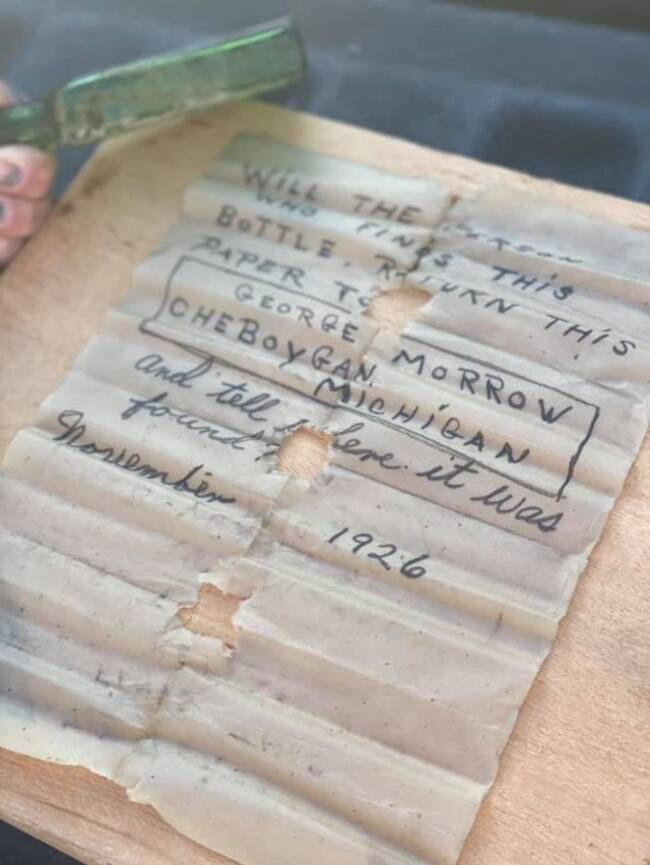 WILL THE PERSON
WHO FINDS THIS
BOTTLE. RETURN THIS
PAPER TO
GEORGE MORROW
CHEBOYGAN, MICHIGAN
and tell where it was
found
November 1926